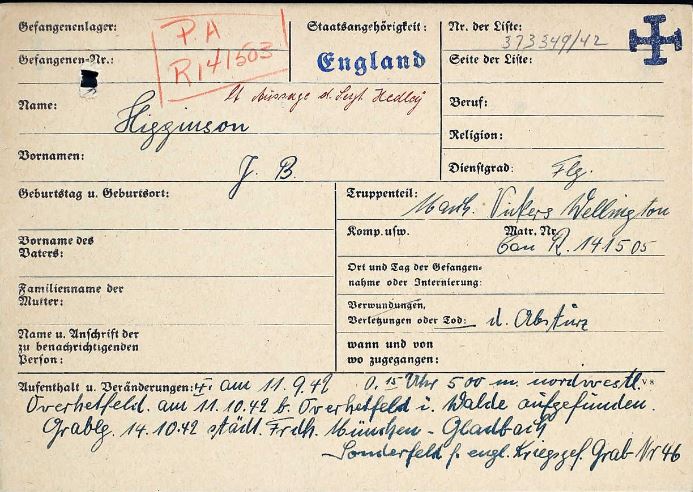 Gefangenenlager:
P A
R 141503
Staatsangehörigkeit:
England
Nr. der Liste:
373349/42
Gefangenen-Nr.:
Seite der Liste:
lt Aussage d. Sergt. Hedley
Name: Higginson
Beruf:
Religion:
Vornamen: J. B.
Dienstgrad: Flg.
Geburtstag u. Geburtsort:
Truppenteil: Vickers Wellington
Komp. usw.
Matr. Nr.
Can R. 141505
Vorname des
Vaters:
Ort und Tag der Gefangen-
nahme oder Internierung:
Familienname der
Mutter:
Verwundungen,
Verletzungen oder Tod: d. Absturz
Name u. Anschrift der
zu benachrichtigenden
Person:
wann und von
wo zugegangen:
Aufenthalt u. Veränderungen: am 11.9.42 0.15 Uhr 500 m. nordwestl.
Overhetfeld. am 11.10.42 b. Overhetfeld i. Walde aufgefunden.
Grablg. 14.10.42 städt. Frdh. München-Gladbach
Sonderfeld f. engl. Kriegsgef. Grab Nr 46